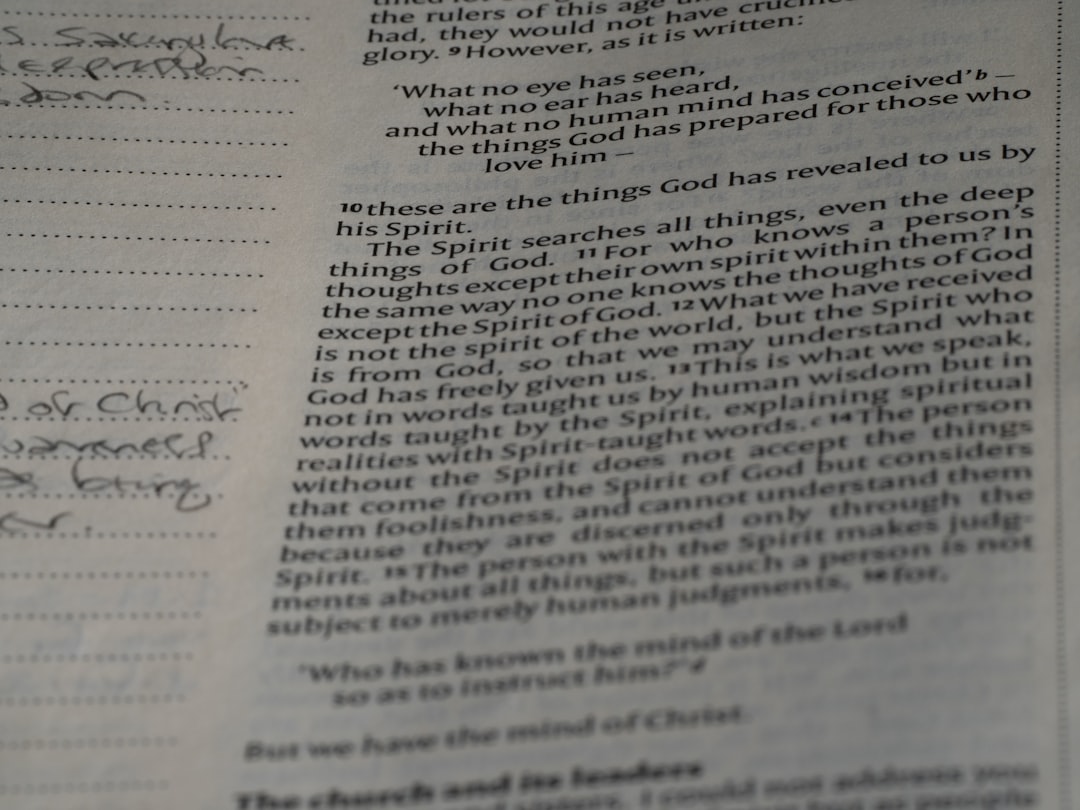 the rulers of this age
had, they would not have
glory. ⁹However, as it is written:
‘What no eye has seen,
what no ear has heard,
and what no human mind has conceived’ᵇ –
the things God has prepared for those who
love him –
¹⁰these are the things God has revealed to us by
his Spirit.
The Spirit searches all things, even the deep
things of God. ¹¹For who knows a person’s
thoughts except their own spirit within them? In
the same way no one knows the thoughts of God
except the Spirit of God. ¹²What we have received
is not the spirit of the world, but the Spirit who
is from God, so that we may understand what
God has freely given us. ¹³This is what we speak,
not in words taught us by human wisdom but in
words taught by the Spirit, explaining spiritual
realities with Spirit-taught words.ᶜ ¹⁴The person
without the Spirit does not accept the things
that come from the Spirit of God but considers
them foolishness, and cannot understand them
because they are discerned only through the
Spirit. ¹⁵The person with the Spirit makes judg-
ments about all things, but such a person is not
subject to merely human judgments, ¹⁶for,
‘Who has known the mind of the Lord
so as to instruct him?’ᵈ
But we have the mind of Christ.
The church and its leaders
I could not address you
of Christ"
& bring